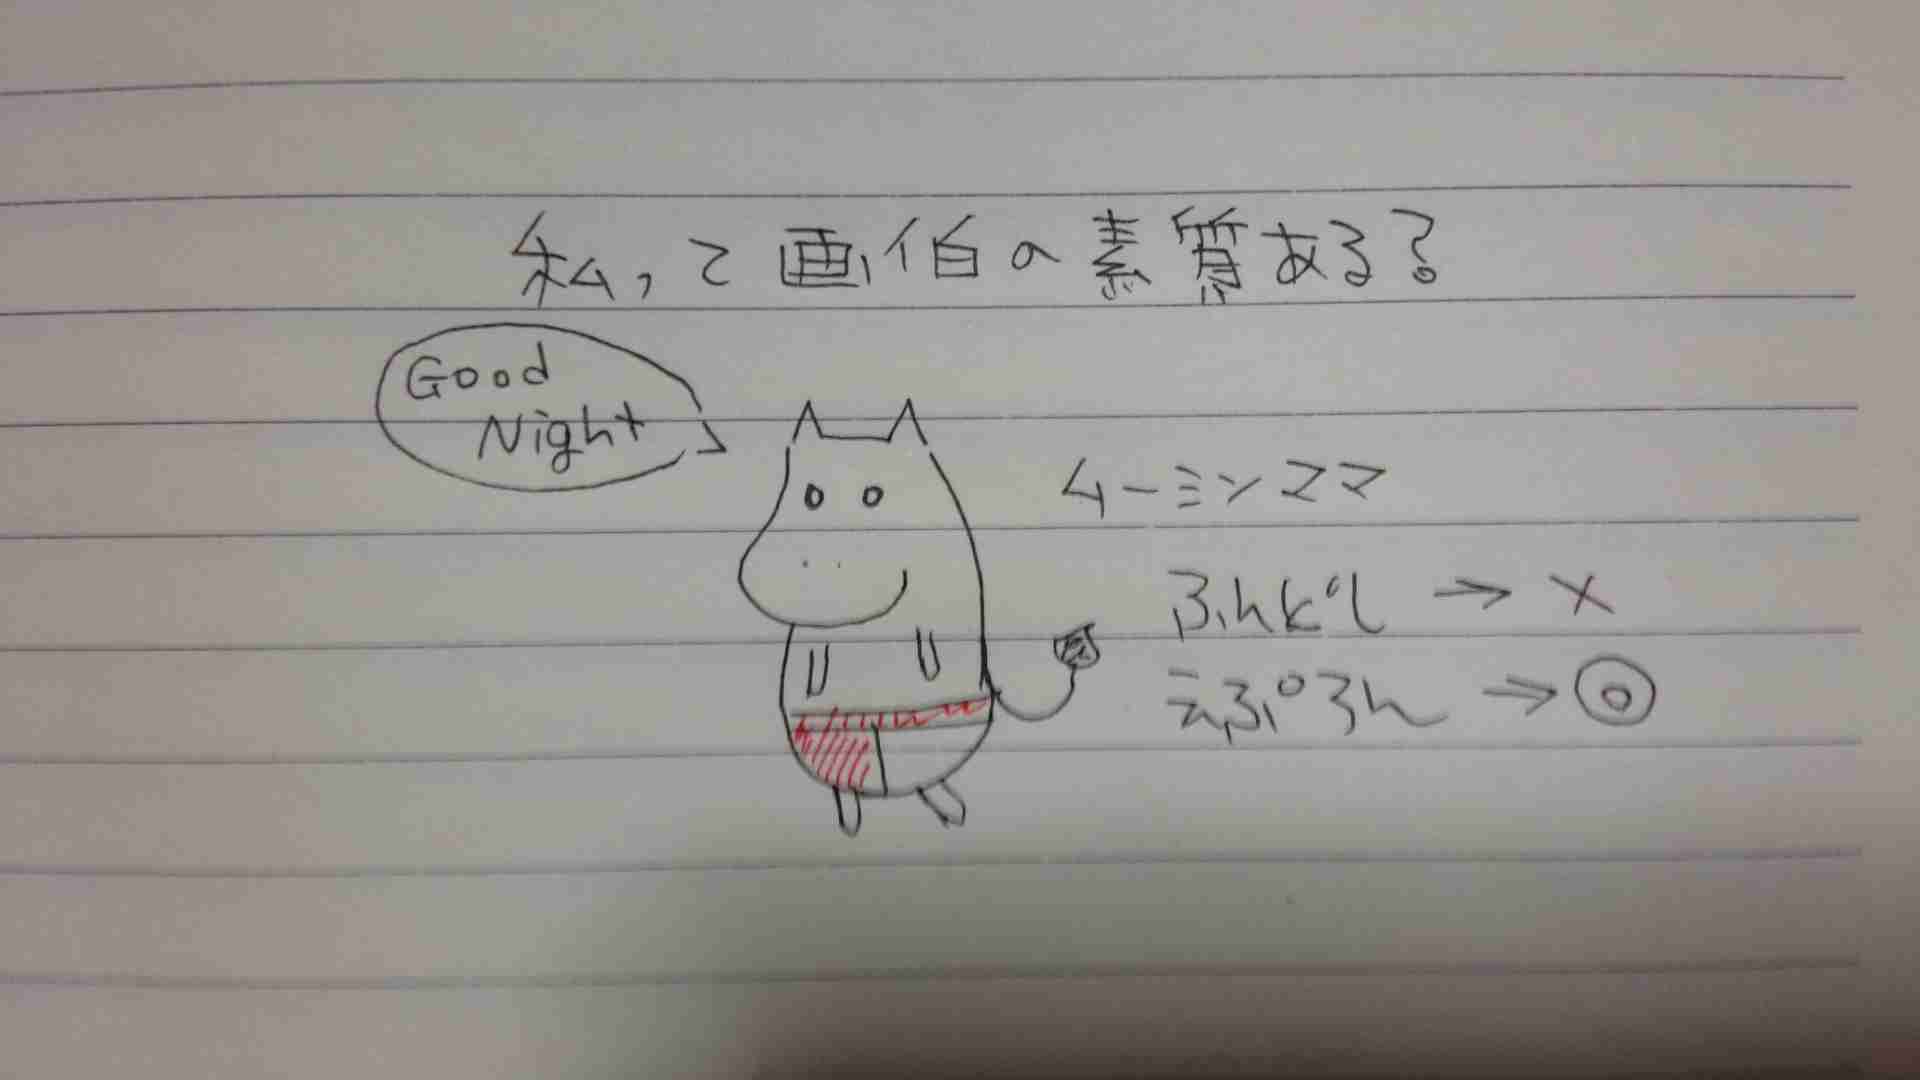 私って画伯の素質ある?
Good
Night
ムーミンママ
ふんどし → ×
えぷろん → ◎